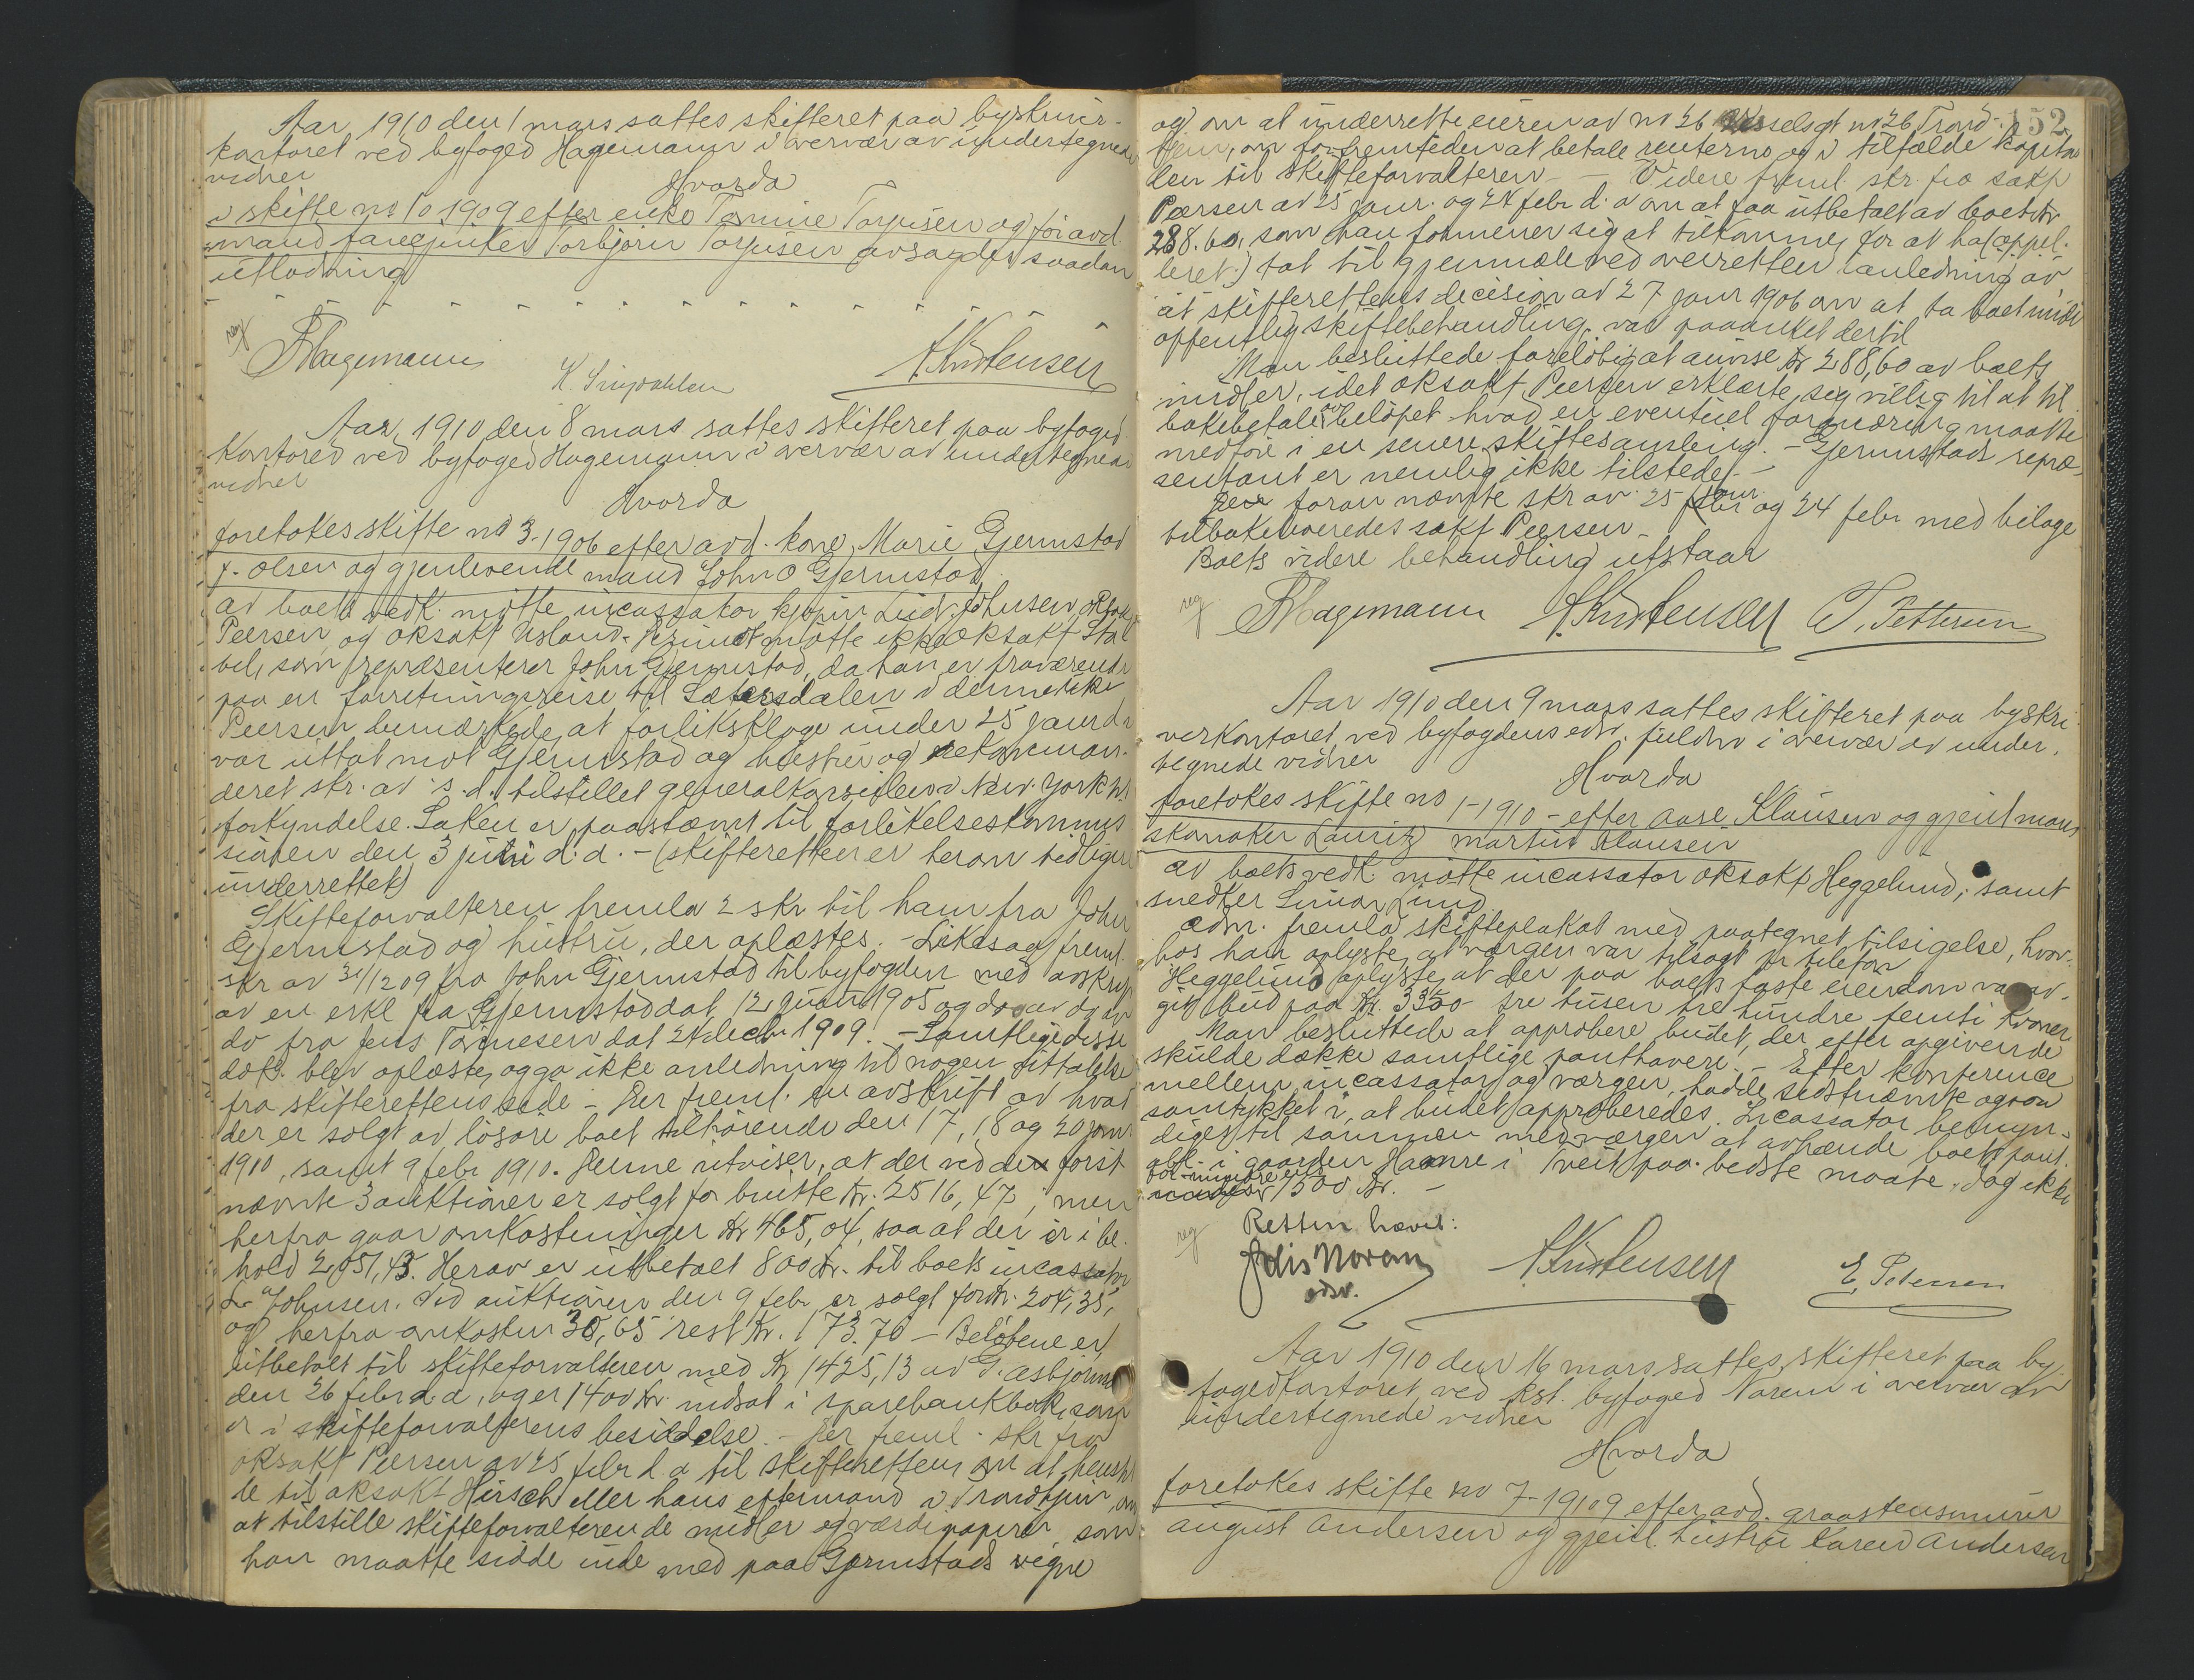 Aar 1910 den 1 mars sattes skifteret paa byskriver-
kontoret ved byfoged Hagemann i overvær av undertegnede
vidner
Hvorda
i skifte no 10 1909 efter enke Tomine Torjusen og før avd.
mand faregjinker Torbjørn Torjusen avsagdes saadan
utlodning
reg
Hagemann
A Kristensen
Aar 1910 den 8 mars sattes skifteret paa byfoged
kontoret ved byfoged Hagemann i overvær av undertegnede
vidner
Hvorda
foretokes skifte no 3-1906 efter avd. kone Marie Gjermstad
f. Olsen og gjenlevende mand John O Gjermstad
av boets vedk. møtte incassator kjøpm Ludv. Johnsen, oksakf
Peersen og oksakf Usland. Derimot møtte ikke oksakf Sta-
bel, som repræsenterer John Gjermstad, da han er fraværende
paa en forretningsreise til Sætersdalen i denne uke
Peersen bemærkede, at forliksklage under 25 janr d. a
var uttat mot Gjermstad og hustru og rekomman-
deret skr. av s. d. tilstillet generalkonsulen i New-York til
forkyndelse. Saken er paastævnt til forlikelseskommis
sionen den 3 juni d. a. - (skifteretten er herom tidligere
underrettet)
Skifteforvalteren fremla 2 skr til ham fra John
Gjermstad og hustru, der oplæstes. - Likesaa freml.
skr av 31/12 09 fra John Gjermstad til byfogden med avskrift
av en erkl fra Gjermstad dat 12 juni 1905 og do av og av
do fra Jens Tønnesen dat 24 decbr 1909. - Samtlige disse
dok. blev oplæste, og ga ikke anledning til nogen uttalelse
fra skifterettens side - Der freml. en avskrift av hvad
der er solgt av løsøre boet tilhørende den 17, 18 og 20 janr
1910, samt 9 febr 1910. Denne utviser, at der ved de først
nævnte 3 auktioner er solgt for brutto kr. 2516,47, men
herfra gaar omkostninger kr 465,04, saa at der er i be-
hold 2051,43. Herav er utbetalt 800 kr. til boets incassator
L. Johnsen. Ved auktionen den 9 febr er solgt for kr. 204,35,
og herfra omkostn 30,65 rest kr. 173.70 - Beløbene er
utbetalt til skifteforvalteren med kr 1425,13 av G. Asbjørnsen
den 26 febr d. a, og er 1400 kr. indsat i sparebankbok, som
er i skifteforvalterens besiddelse. - Der freml. skr fra
oksakf Peersen av 25 febr d. a til skifteretten om at henstil
le til oksakf Hirsch eller hans eftermand i Trondhjem, om
at tilstille skifteforvalteren de midler og værdipapirer, som
han maatte sidde inde med paa Gjermstads vegne
152
og om at underrette eieren av no 26, no 26 Trond-
hjem, om for fremtiden at betale renterne og i tilfælde kapita
len til skifteforvalteren - Videre freml. skr. fra sakf
Peersen av 25 janr. og 24 febr d. a om at faa utbetalt av boet kr.
288.60, som han formener sig at tilkomme, for at ha (appel-
leret) tat til gjenmæle ved overretten i anledning av
at skifterettens decision av 27 janr 1906 om at ta boet under
offentlig skiftebehandling, var paaanket dertil
Man besluttede foreløbig at anvise kr 288,60 av boets
midler, idet oksakf Peersen erklærte sig villig til at til
bakebetale av beløpet hvad en eventuel forandring maatte
medføre i en senere skiftesamling. - Gjermstads repræ-
sentant er nemlig ikke tilstede. -
foran nævnte skr av 25 janr og 24 febr med bilage
tilbakeleveredes sakf Peersen -
Boets videre behandling utstaar
reg
Hagemann A Kristensen T. Pettersen
Aar 1910 den 9 mars sattes skifteret paa byskri-
verkontoret ved byfogdens edsv. fuldm i overvær av under-
tegnede vidner
Hvorda
foretokes skifte no 1-1910 - efter Aase Klausen og gjenl mand
skomaker Lauritz Martin Klausen
av boets vedk. møtte incassator oksakf Heggelund, samt
snedker Lind.
Adm. fremla skifteplakat med paategnet tilsigelse, hvor-
hos han oplyste, at værgen var tilsagt pr telefon
Heggelund oplyste, at der paa boets faste eiendom var av-
git bud paa kr. 3350 - tre tusen tre hundre femti kroner
Man besluttede at approbere budet, der efter opgivende
skulde dække samtlige panthavere. - Efter konference
mellem incassator og værgen, hadde sidstnævnte ogsaa
samtykket i, at budet approberedes. Incassator bemyn-
diges til sammen med værgen at avhænde boets pant
obl. i gaarden Haanre i Tveit paa bedste maate, dog ikke
for mindre end
1500 kr. -
reg
Retten hævet:
Joh's Norem
edsv.
A Kristensen
E. Petersen
Aar 1910 den 16 mars sattes skifteret paa by-
fogedkontoret ved kst. byfoged Norem i overvær av
undertegnede vidner
Hvorda
foretokes skifte no 7-1909 efter avd. graastensmurer
August Andersen og gjenl. hustru Karen Andersen